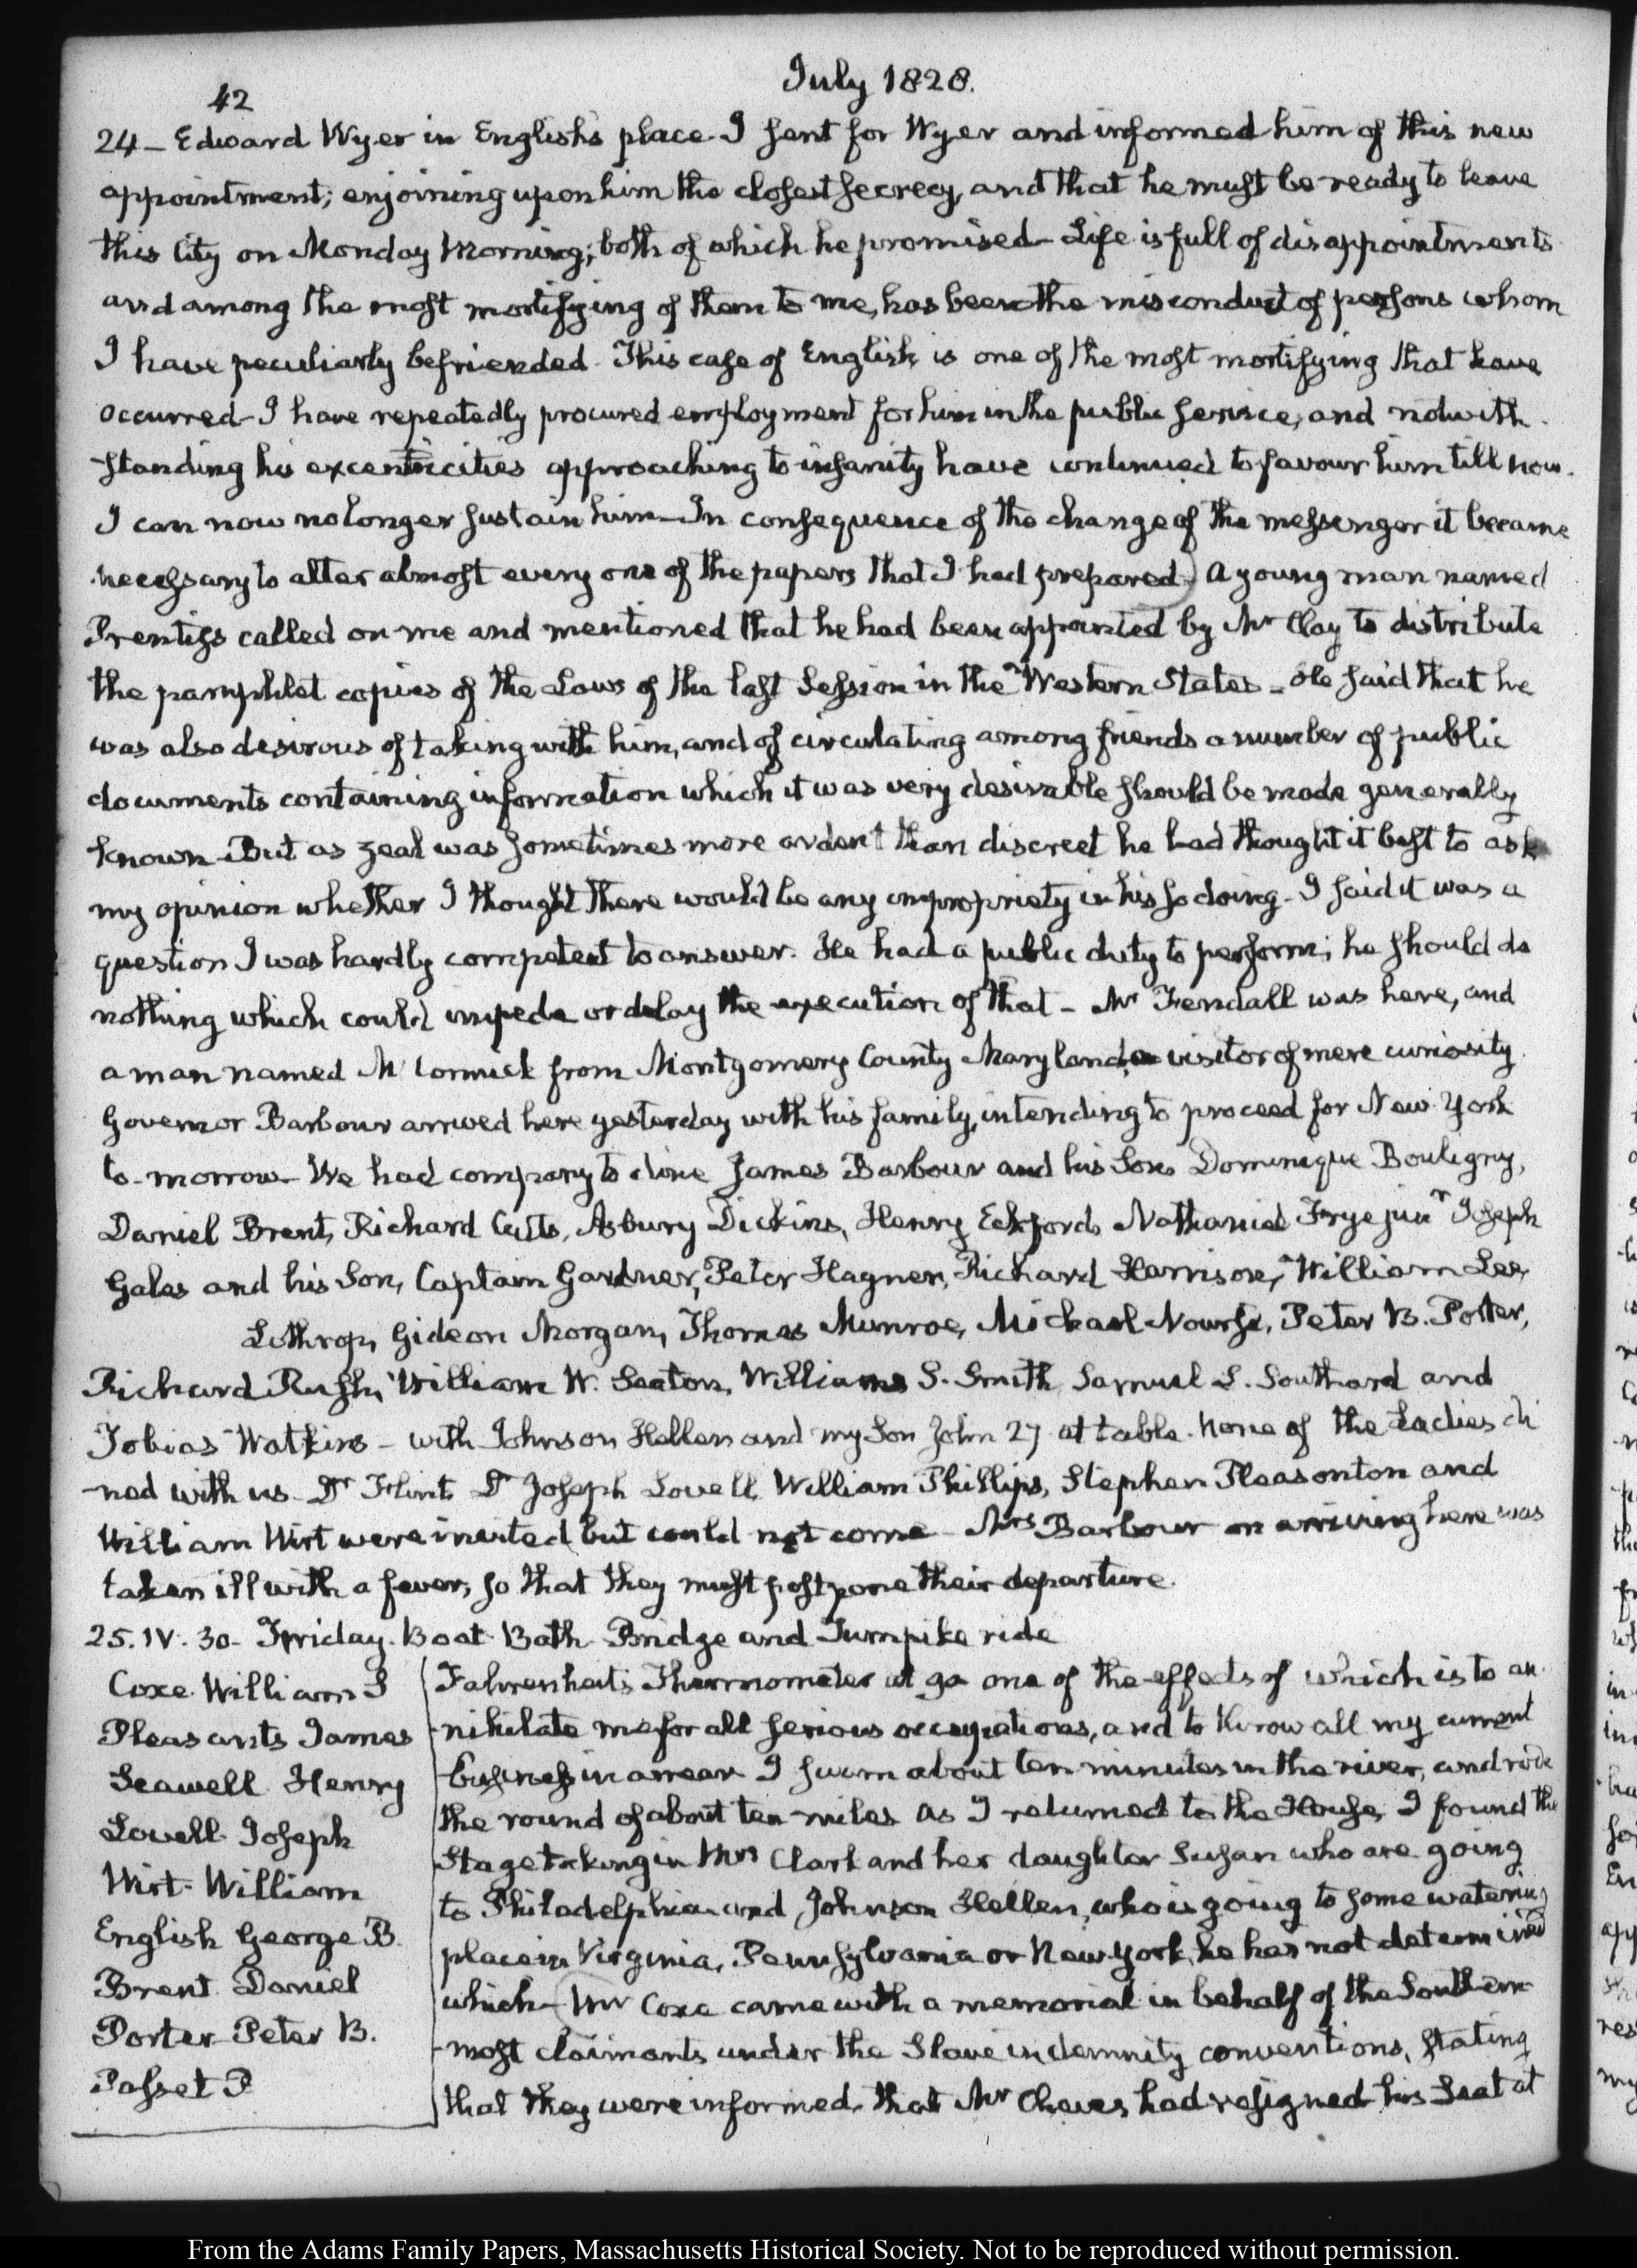 July 1828.
42
24 — Edward Wyer in English's place. I sent for Wyer and informed him of this new
appointment; enjoining upon him the closest secrecy, and that he must be ready to leave
this City on Monday Morning; both of which he promised — Life is full of disappointments
and among the most mortifying of them to me, has been the misconduct of persons whom
I have peculiarly befriended. This case of English is one of the most mortifying that have
occurred — I have repeatedly procured employment for him in the public service, and notwith-
standing his excentricities approaching to insanity have continued to favour him till now.
I can now no longer sustain him — In consequence of the change of the messenger it became
necessary to alter almost every one of the papers that I had prepared) A young man named
Prentiss called on me and mentioned that he had been appointed by Mr Clay to distribute
the pamphlet copies of the Laws of the last Session in the Western States — He said that he
was also desirous of taking with him, and of circulating among friends a number of public
documents containing information which it was very desirable should be made generally
known — But as zeal was sometimes more ardent than discreet he had thought it best to ask
my opinion whether I thought there would be any impropriety in his so doing — I said it was a
question I was hardly competent to answer. He had a public duty to perform; he should do
nothing which could impede or delay the execution of that — Mr Fendall was here, and
a man named McCormick from Montgomery County Maryland, a visitor of mere curiosity.
Governor Barbour arrived here yesterday with his family, intending to proceed for New York
to-morrow — We had company to dine James Barbour and his Son, Dominique Bouligny,
Daniel Brent, Richard Cutts, Asbury Dickins, Henry Eckford, Nathaniel Frye junr Joseph
Gales and his Son, Captain Gardner, Peter Hagner, Richard Harrison, William Lee,
Lothrop, Gideon Morgan, Thomas Munroe, Michael Nourse, Peter B. Porter,
Richard Rush, William W. Seaton, William S. Smith, Samuel L. Southard and
Tobias Watkins — with Johnson Hellen and my Son John 27 at table. None of the Ladies di
-ned with us — Dr Flint, Dr Joseph Lovell, William Phillips, Stephen Pleasonton and
William Wirt were invited but could not come — Mrs Barbour on arriving here was
taken ill with a fever, so that they must postpone their departure.
25. IV. 30 — Friday. Boat Bath Bridge and Turnpike ride
Coxe William S
Pleasants James
Seawell Henry
Lovell Joseph
Wirt William
English George B.
Brent Daniel
Porter Peter B.
Passet P
Fahrenheit's Thermometer at 90 one of the effects of which is to an-
nihilate me for all serious occupations, and to throw all my current
business in arrear I swam about ten minutes in the river, and rode
the round of about ten miles As I returned to the House, I found the
Stage taking in Mrs Clark and her daughter Susan who are going
to Philadelphia and Johnson Hellen, who is going to some watering
place in Virginia, Pennsylvania or New York, he has not determined
which — (Mr Coxe came with a memorial in behalf of the Southern-
most claimants under the Slave indemnity conventions, stating
that they were informed that Mr Cheves had resigned his Seat at
From the Adams Family Papers, Massachusetts Historical Society. Not to be reproduced without permission.